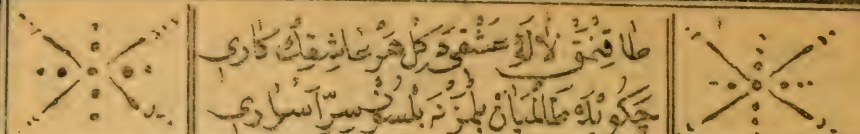 طاقِنمَقْ لالَهْ عَشْقِى دَكِلْ هَرْ عاشِقِڭْ كارى
چكوبْدَهْ طالْمَيانْ بِلْمَزْ نَه بِلْسونْ سِرّ اَسْرارى